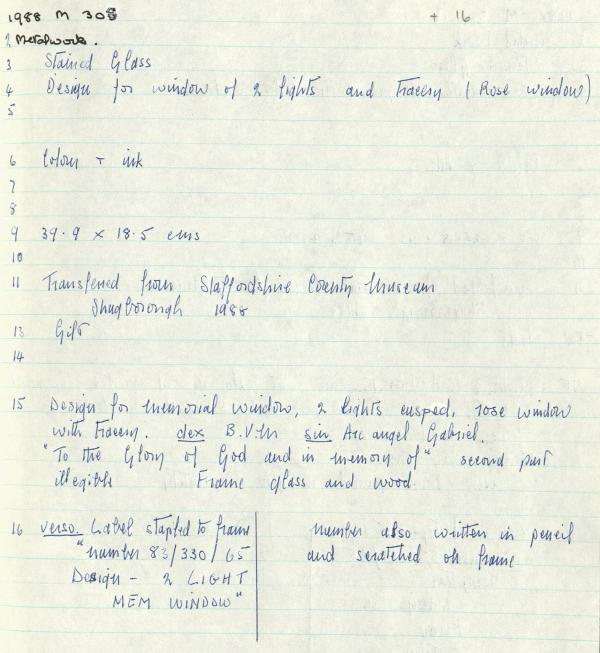 1988 M 308 + 16
2 Metalwork.
3 Stained Glass
4 Design for window of 2 lights and tracery (Rose window)
5
6 Colour + ink
7
8
9 39.9 x 18.5 cms
10
11 Transferred from Staffordshire County Museum
Shugborough 1988
13 Gift
14
15 Design for memorial window, 2 lights cusped, rose window
with tracery. dex B.V.M sin Arc angel Gabriel.
"To the Glory of God and in memory of" second part
illegible Frame glass and wood.
16 verso. Label stapled to frame
"number 83/330/65
Design - 2 LIGHT
MEM WINDOW"
number also written in pencil
and scratched on frame